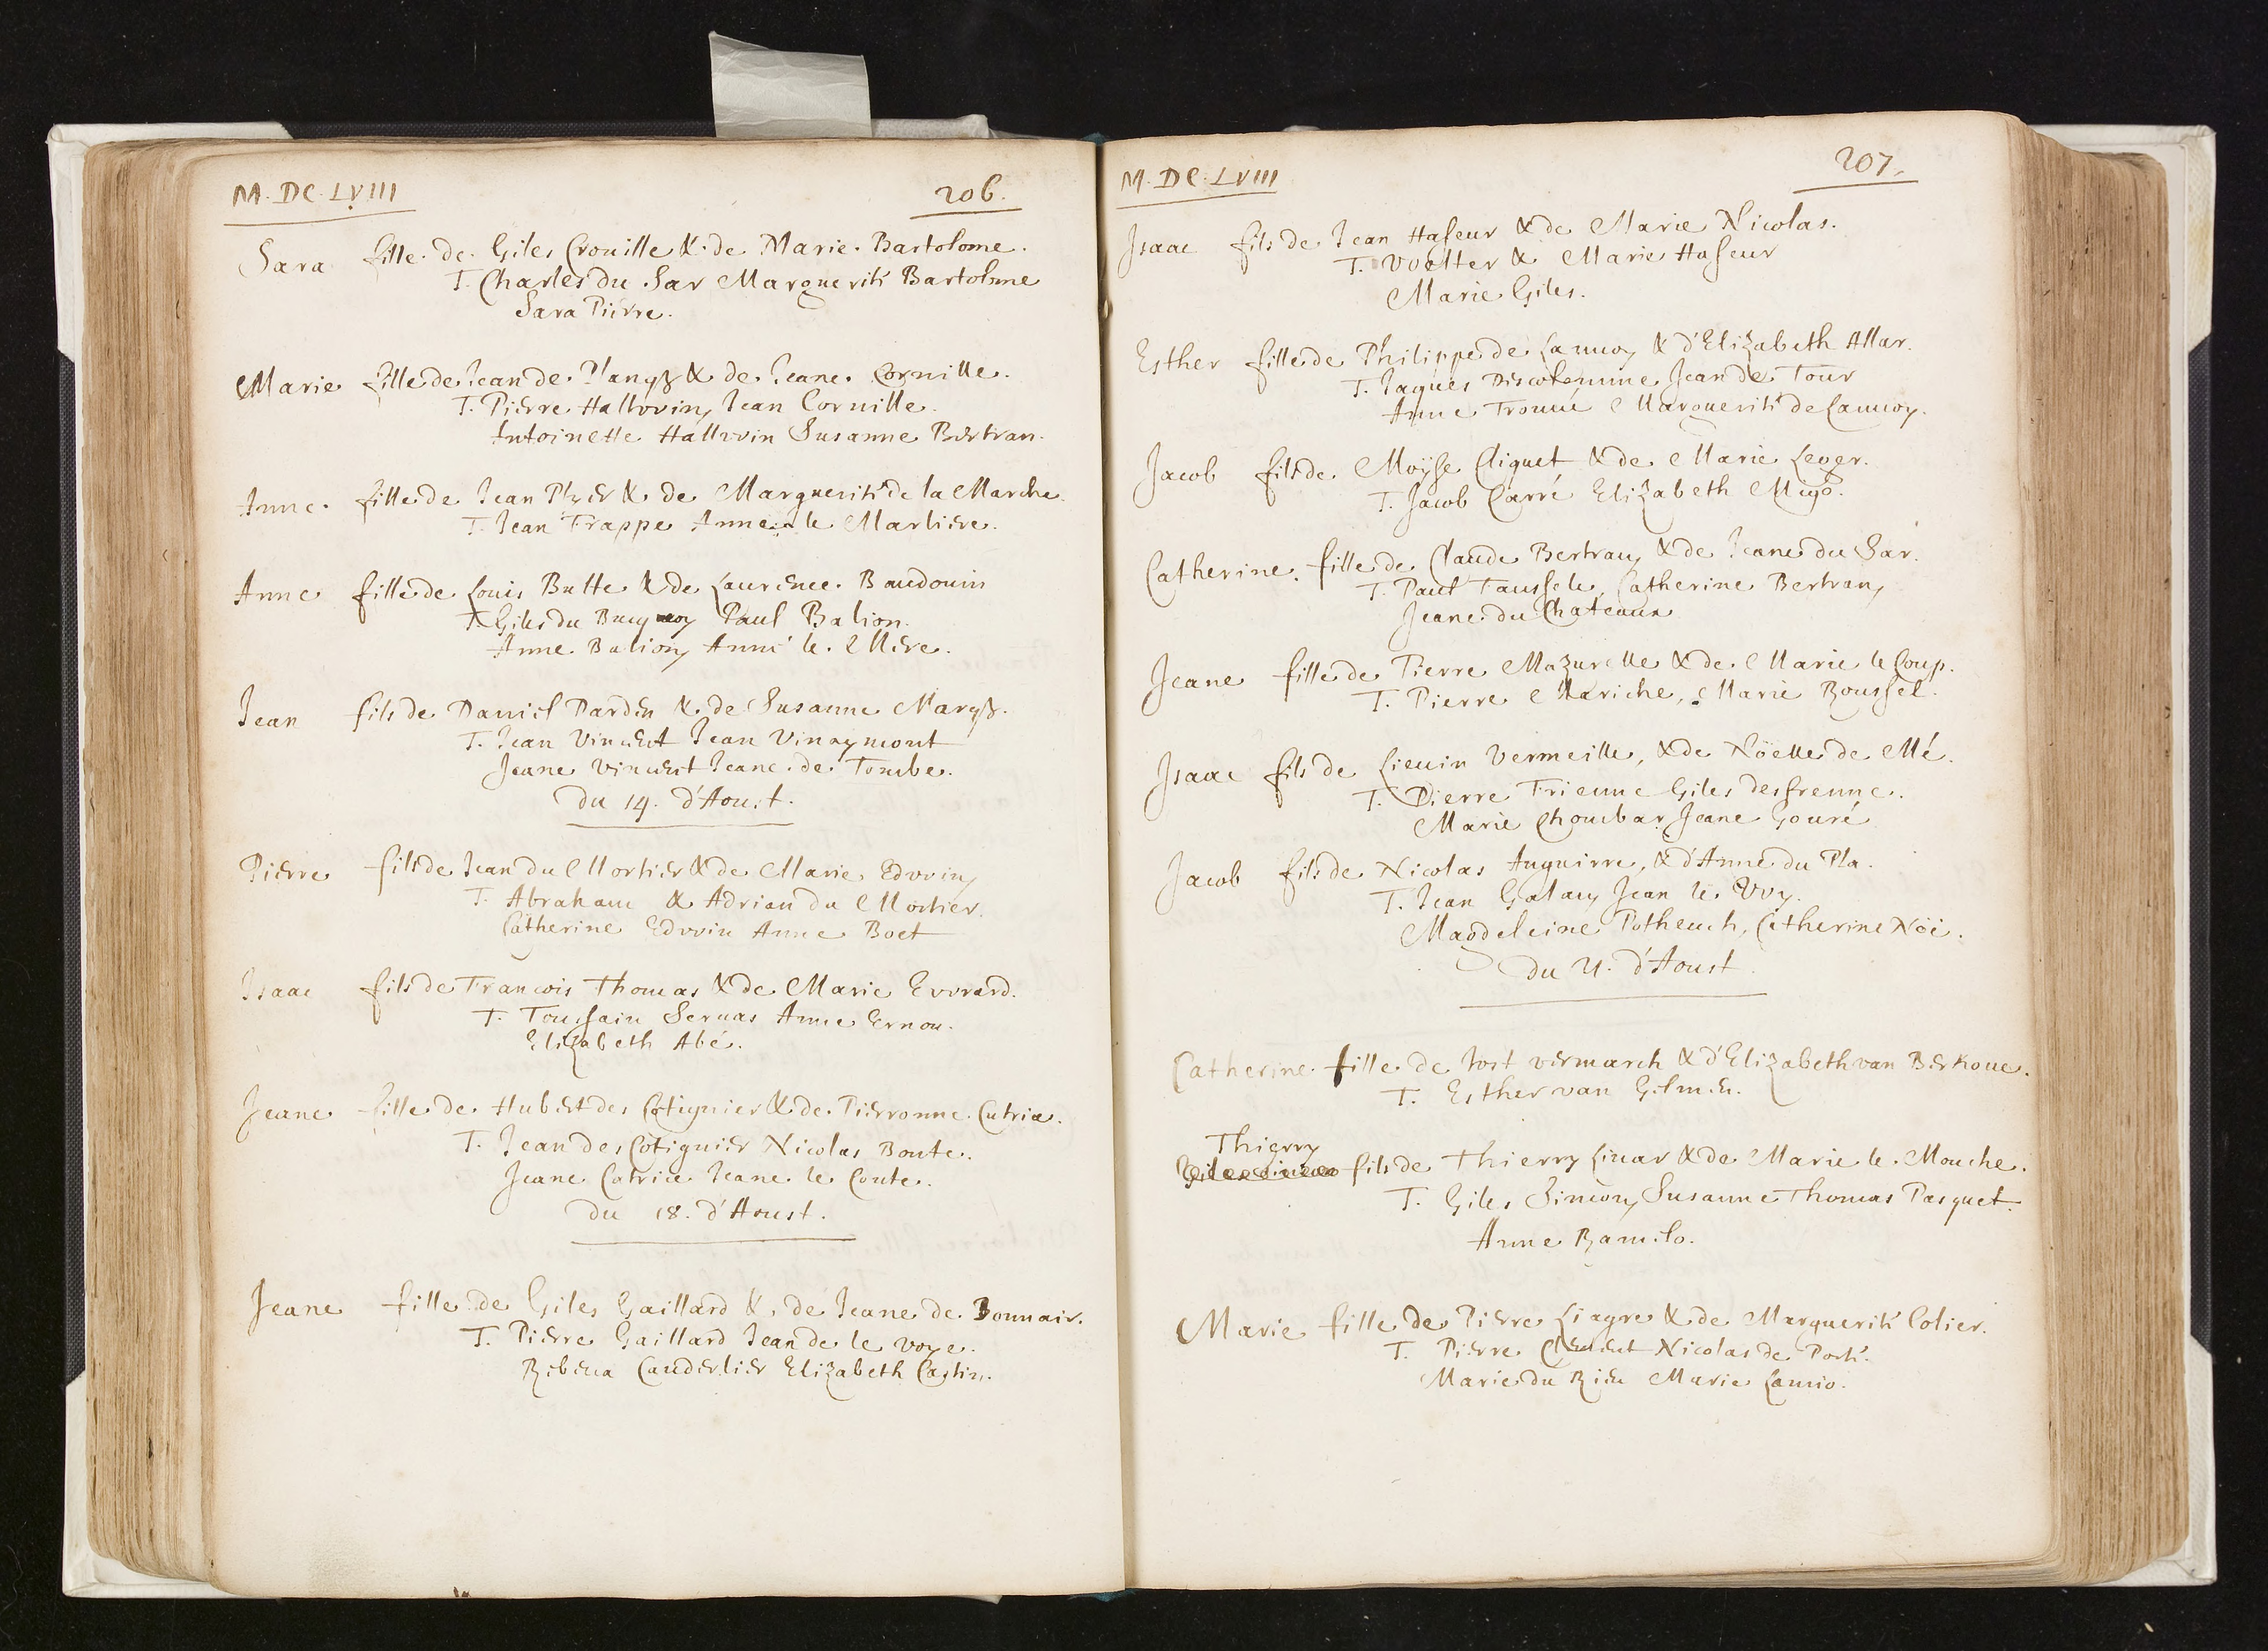 M. DC. LVIII
206.
Sara fille de Giles Crouille & de Marie Bartolome.
T. Charles du Sar Marguerite Bartolome
Sara Pierre.
Marie fille de Jean de & de Jeane Cornille.
T. Pierre Hallovin, Jean Cornille.
Antoinette Hallovin Susanne Bertran.
Anne fille de Jean & de Marguerite de la Marche.
T. Jean Trappe Anne le Marliere.
Anne fille de Louis Butte & de Laurence Baudouin
T. Giles du Paul Balion.
Anne Balion, Anne le Mere.
Jean fils de Daniel Dardin & de Susanne
T. Jean Vincent Jean Vinaymont
Jeane Vincent Jeane de Tombe.
du 14. d'Aoust.
Pierre fils de Jean du Mortier & de Marie Edvvin,
T. Abraham & Adrian du Mortier.
Catherine Edvvin Anne Boet
Isaac fils de Francois Thomas & de Marie Evvrard.
T. Toussain Seruas Anne Ernou.
Elizabeth Abé.
Jeane fille de Hubert des Cotignier & de Pieronne Catrice.
T. Jean des Cotignier Nicolas Bonte.
Jeane Catrice Jeane le Conte.
du 18. d'Aoust.
Jeane fille de Giles Gaillard & de Jeane de Bonnair.
T. Pierre Gaillard Jean de le voye.
Rebecca Cauderlier Elizabeth Castin.
M. DC. LVIII
207.
Isaac fils de Jean Haseur & de Marie Nicolas.
T. & Marie Haseur
Marie Giles.
Esther fille de Philippe de Lannoy & d'Elizabeth Allar.
T. Jaques Jean de Tour
Anne Marguerite de Lannoy.
Jacob fils de Moÿse Cliquet & de Marie Leger.
T. Jacob Carré Elizabeth Migo.
Catherine fille de Claude Bertran, & de Jeane du Sar.
T. Paul Catherine Bertran,
Jeane du Chateaux
Jeane fille de Pierre Mazurelle & de Marie le Coup.
T. Pierre Mariche, Marie Roussel.
Isaac fils de Lieuin Vermeille, & de Nöelle de Mé.
T. Pierre Frienne Giles desfrenne.
Marie Chombar Jeane Gouré
Jacob fils de Nicolas & d'Anne du Pla.
T. Jean Jean le Vvy.
Magdeleine Catherine Nöé.
du 21. d'Aoust
Catherine fille de Jost vermarch & d'Elizabeth van Berkoue.
T. Esther van Gilmen.
Thierry
fils de Thierry Linar & de Marie le Mouche.
T. Giles Simon, Susanne Thomas Pasquet.
Anne Ramelo.
Marie fille de Pierre Liagre & de Marguerite Colier.
T. Pierre Clement Nicolas de Porte.
Marie du Rieu Marie Lannio.